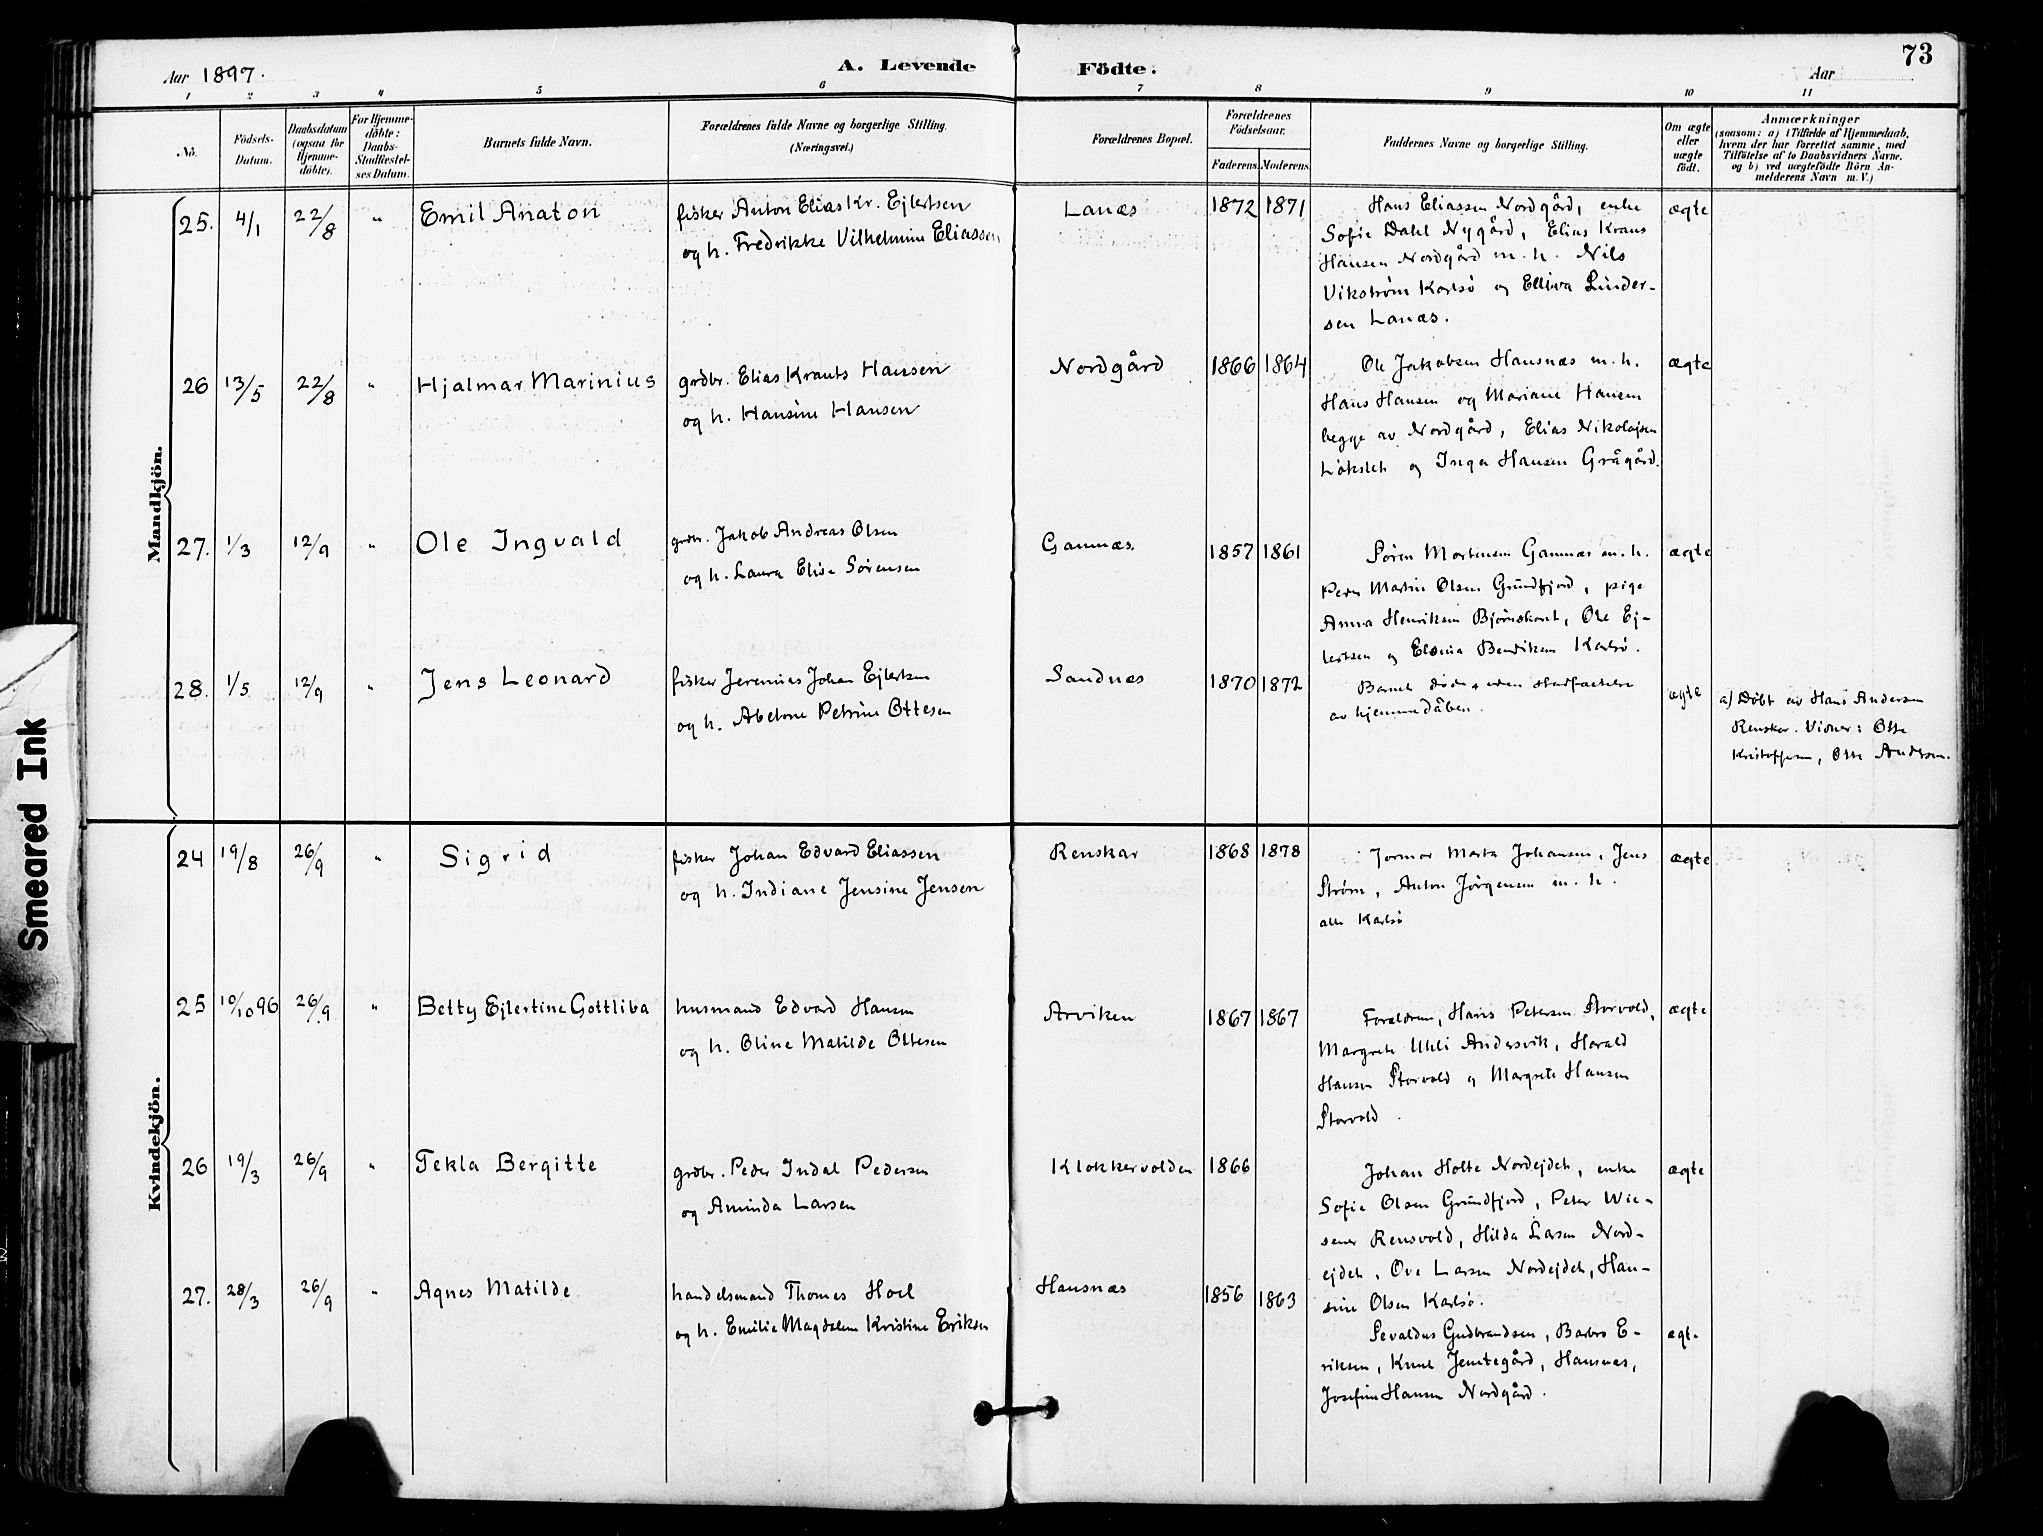 73
Aar 1897.
A. Levende Födte.
Aar
1 2 3 4 5 6 7 8 9 10 11
No.
Födsels-
Datum.
Daabsdatum
(ogsaa for
Hjemme-
döbte).
For Hjemme-
döbte:
Daabs-
Stadfæstel-
ses Datum.
Barnets fulde Navn.
Forældrenes fulde Navne og borgerlige Stilling.
(Næringsvei.)
Forældrenes Bopæl.
Forældrenes
Födselsaar.
Faderens Moderens
Faddernes Navne og borgerlige Stilling.
Om ægte
eller
uægte
födt.
Anmærkninger
(saasom: a) i Tilfælde af Hjemmedaab,
hvem der har forrettet samme, med
Tilföielse af to Daabsvidners Navne,
og b) ved uægtefödte Börn An-
melderens Navn m. V.)
Mandkjön.
25. 4/1 22/8 " Emil Anaton
fisker Anton Elias Kr. Ejlertsen
og h. Fredrikke Vilhelmine Eliassen
Lanæs 1872 1871
Hans Eliassen Nordgård, enke
Sofie Dahl Nygård, Elias Kraus
Hansen Nordgård m. h. Nils
Vikstrøm Karlsö og Linder-
sen Lanæs.
ægte
26 13/5 22/8 " Hjalmar Marinius
grdbr. Elias Krauts Hansen
og h. Hansine Hansen
Nordgård 1866 1864
Ole Jakobsen Hansnæs m. h.
Hans Hansen og Mariane Hansen
begge av Nordgård, Elias Nikolajsen
og Inga Hansen Grågård.
ægte
27. 1/3 12/9 " Ole Ingvald
grdbr. Jakob Andreas Olsen
og h. Laura Elise Sörensen
Gamnæs. 1857 1861
Sören Mortensen Gamnæs m. h.
Peder Martin Olsen Grundfjord, pige
Anna Henriksen, Ole Ej-
lertsen og Bendiksen Karlsö.
ægte
28. 1/5 12/9 " Jens Leonard
fisker Jeremias Johan Ejlertsen
og h. Abelone Petrine Ottesen
Sandnæs 1870 1872
Barnet döde uden stadfæstelse
av hjemmedåben.
ægte
a) Döbt av Hans Andersen
Renskar. Vidner: Otte
Kristoffersen, Otte Andersen.
Kvindekjön.
24 19/8 26/9 " Sigrid
fisker Johan Edvard Eliassen
og h. Indiane Jensine Jensen
Renskar 1868 1878
Jormor Marta Johansen, Jens
Ström, Anton Jörgensen m. h.
alle Karlsö
ægte
25 10/10 96 26/9 " Betty Ejlertine Gottliba
husmand Edvard Hansen
og h. Oline Matilde Ottesen
Arviken 1867 1867
Forældrene, Hans Petersen Storvold,
Margrete Uhli Andersvik, Harald
Hansen Storvold og Margrete Hansen
Storvold.
ægte
26 19/3 26/9 " Tekla Bergitte
grdbr. Peder Indal Pedersen
og Aminda Larsen
Klokkervolden 1866
Johan Holte Nordejdet, enke
Sofie Olsen Grundfjord, Peter Wie-
sener Rensvold, Hilda Larsen Nord-
ejdet, Ove Larsen Nordejdet, Han-
sine Olsen Karlsö.
ægte
27. 28/3 26/9 " Agnes Matilde
handelsmand Thomas Hoel
og h. Emilie Magdalene Kristine Eriksen
Hansnæs 1856 1863
Sevaldus Gudbrandsen, Barbro E-
riksen, Knut Jentegård, Hansnæs,
Josefine Hansen Nordgård.
ægt.
Smeared Ink